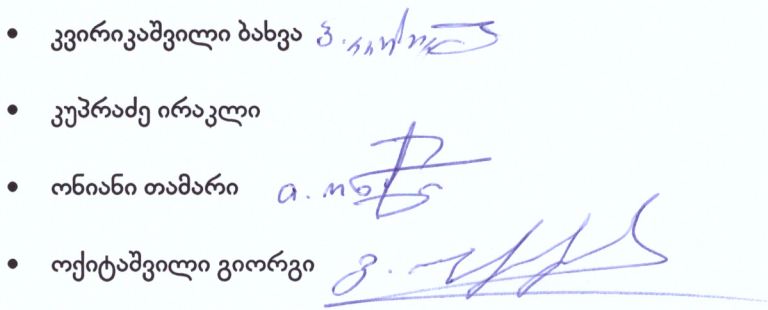 • კვირიკაშვილი ბახვა
• კუპრაძე ირაკლი
• ონიანი თამარი
• ოქიტაშვილი გიორგი